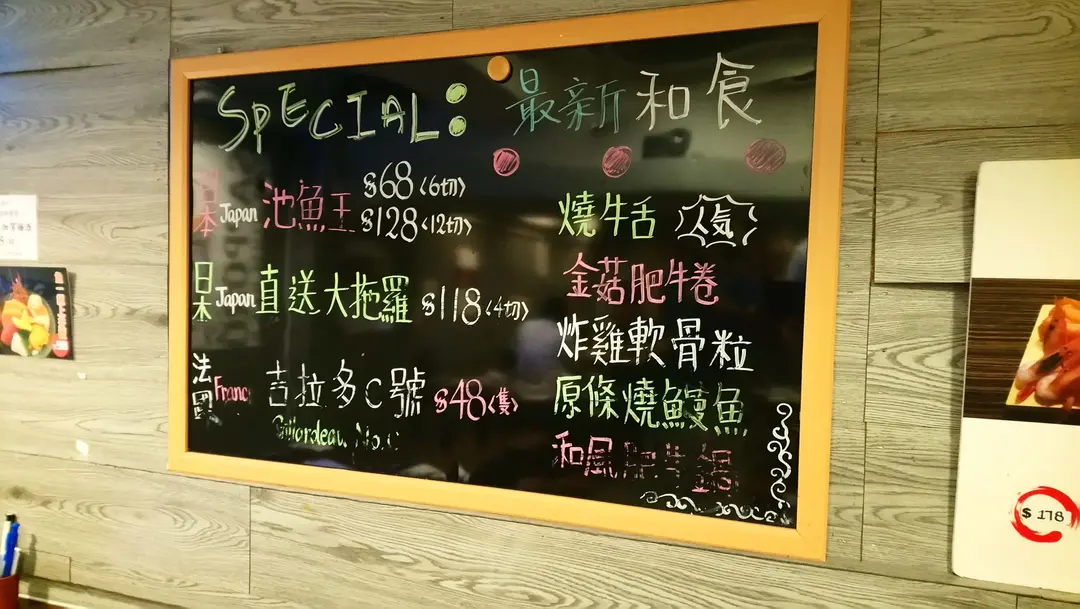 SPECIAL:
最新和食
日本 Japan 池魚王 $68 (6切)
$128 (12切)
日本 Japan 直送大拖羅 $118 (4切)
法國 Franc 吉拉多C號 $48 (隻)
燒牛舌 人気
金菇肥牛卷
炸雞軟骨粒
原條燒鰻魚
和風肥牛鍋
$ 178